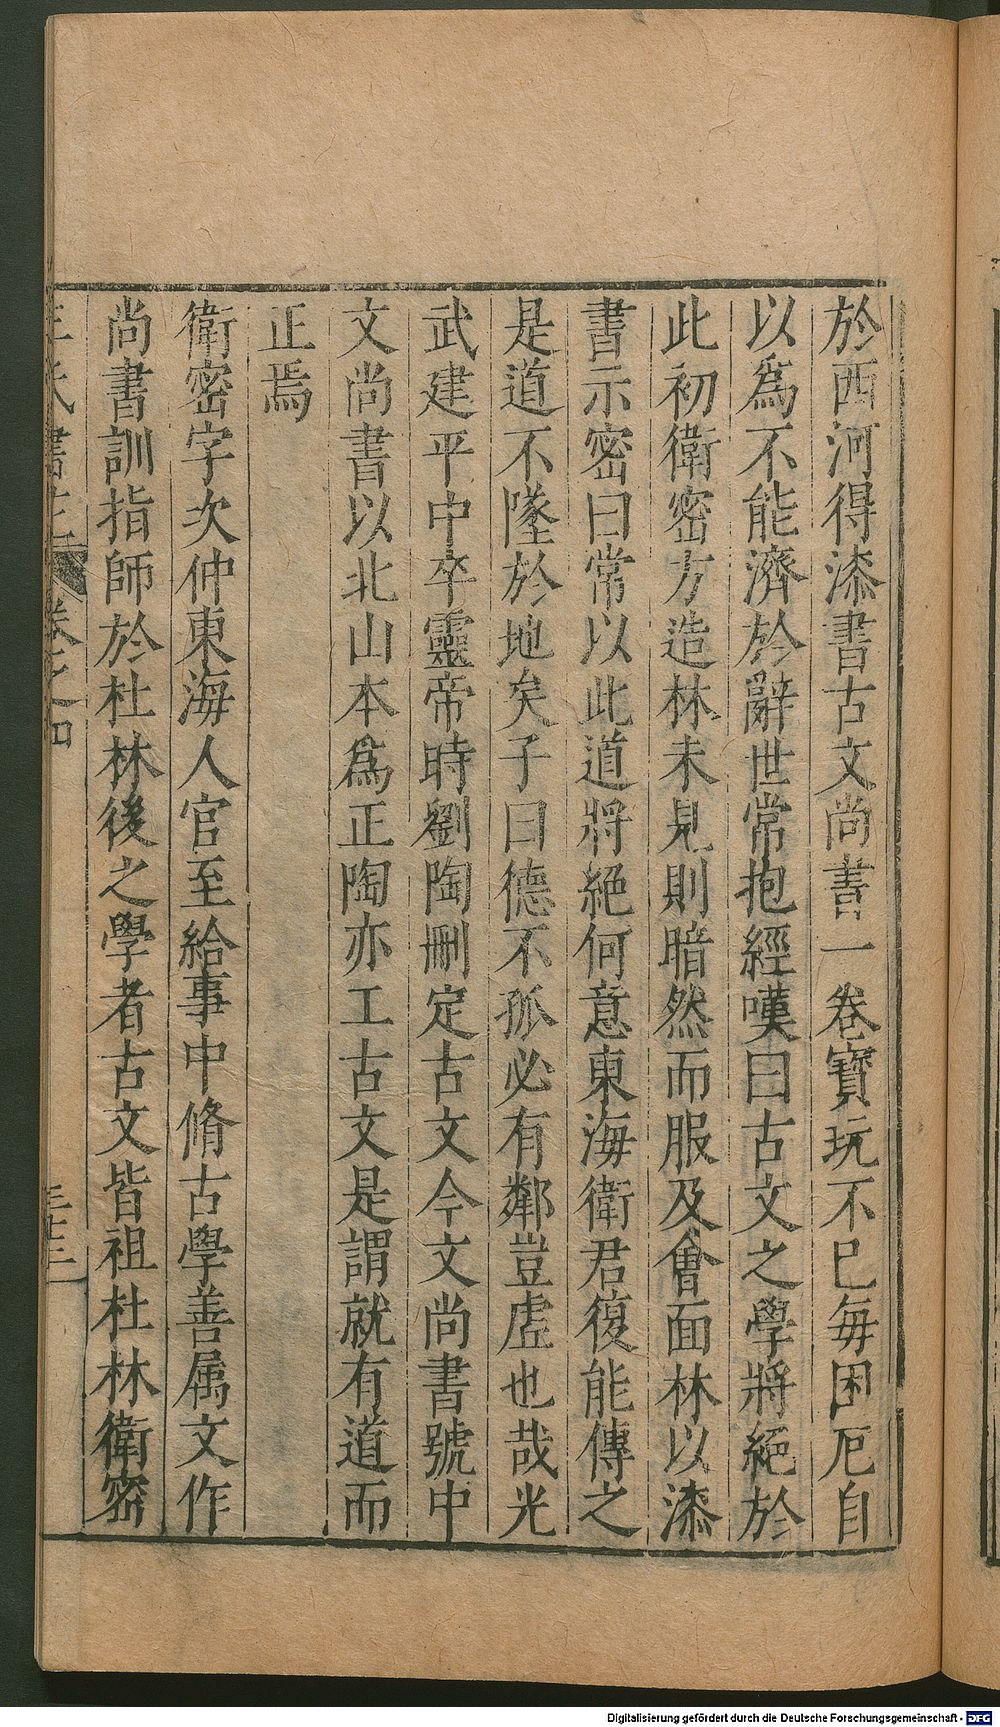 於西河得漆書古文尚書一卷寳玩不已每困厄自
以爲不能濟於辭世常抱經嘆曰古文之學將絕於
此初衛密方造林未見則暗然而服及會面林以漆
書示密曰常以此道將絕何意東海衛君復能傳之
是道不墜於地矣子曰德不孤必有鄰豈虛也哉光
武建平中卒靈帝時劉陶刪定古文今文尚書號中
文尚書以北山本爲正陶亦工古文是謂就有道而
正焉
衛密字次仲東海人官至給事中脩古學善属文作
尚書訓指師於杜林後之學者古文皆祖杜林衛密
王氏書苑 卷之四 三十三
Digitalisierung gefördert durch die Deutsche Forschungsgemeinschaft - DFG